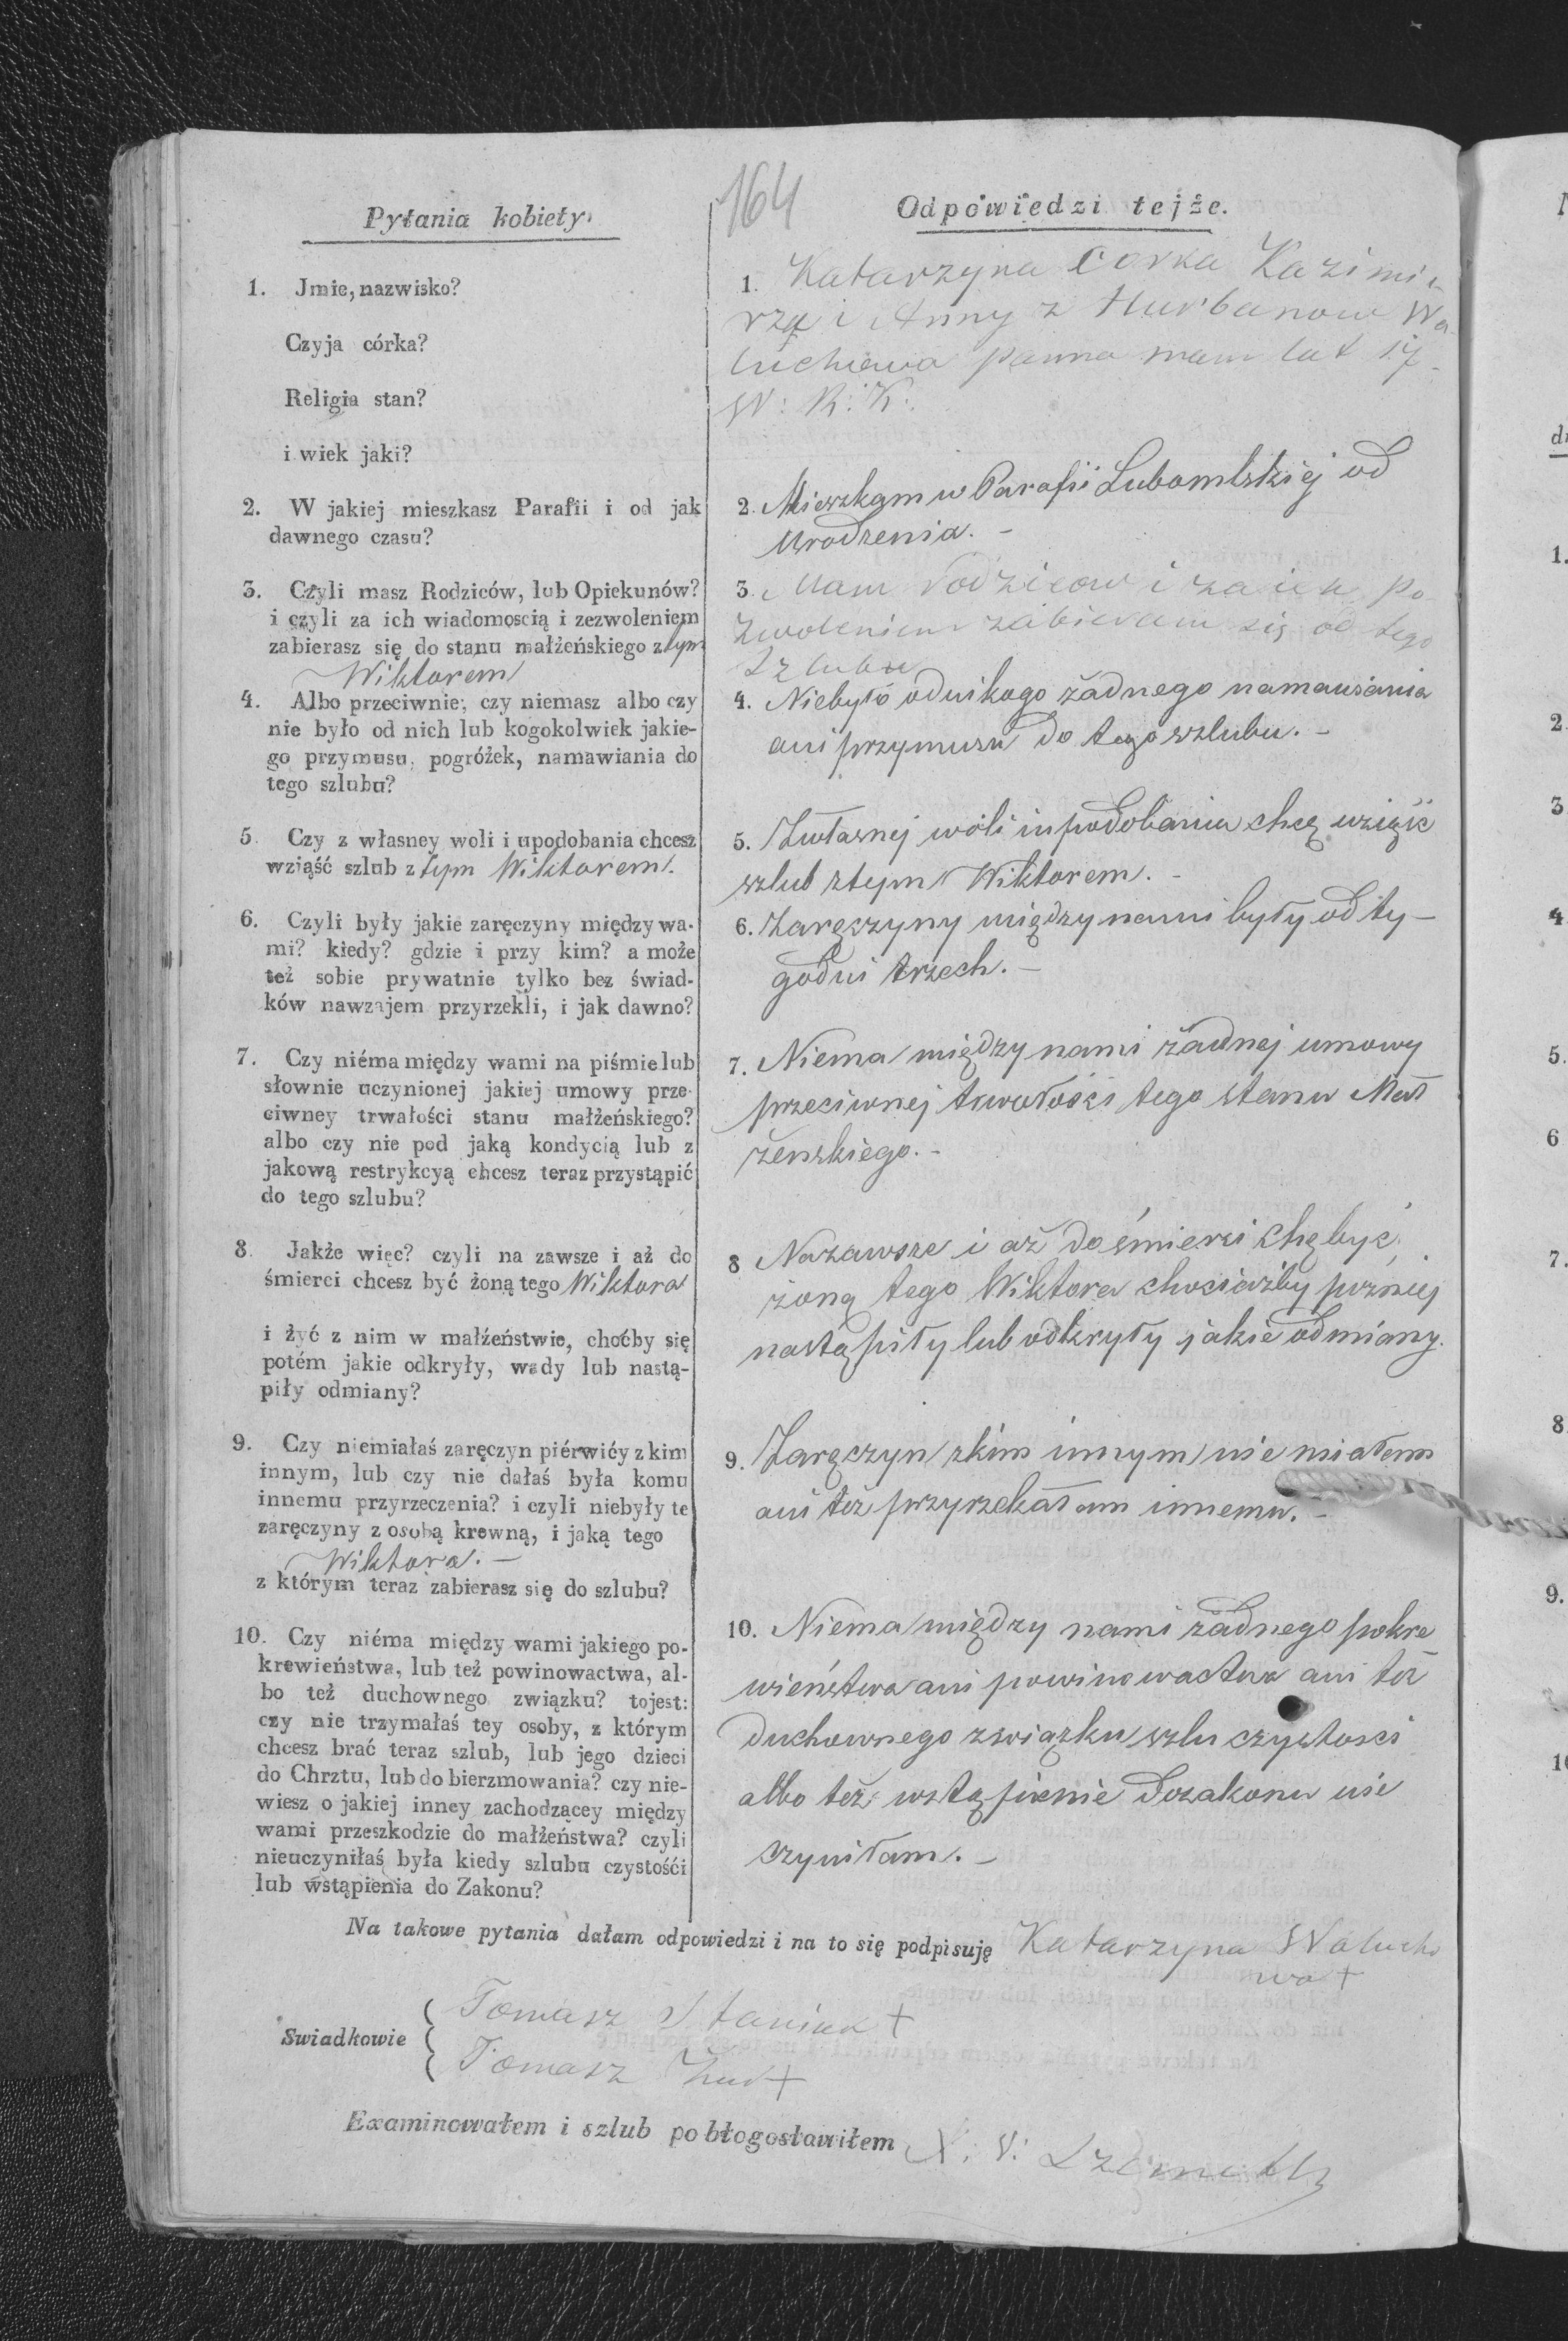 164
Pytania kobiety.
1. Jmie, nazwisko?
Czyja córka?
Religia stan?
i wiek jaki?
2. W jakiej mieszkasz Parafii i od jak
dawnego czasu?
3. Czyli masz Rodziców, lub Opiekunów?
i czyli za ich wiadomoscią i zezwoleniem
zabierasz się do stanu małżeńskiego z tym
Wiktorem
4. Albo przeciwnie, czy niemasz albo czy
nie było od nich lub kogokolwiek jakie-
go przymusu, pogróżek, namawiania do
tego szlubu?
5. Czy z własney woli i upodobania chcesz
wziąść szlub z tym Wiktorem.
6. Czyli były jakie zaręczyny między wa-
mi? kiedy? gdzie i przy kim? a może
też sobie prywatnie tylko bez świad-
ków nawzajem przyrzekli, i jak dawno?
7. Czy niéma między wami na piśmie lub
słownie uczynionej jakiej umowy prze-
ciwney trwałości stanu małżeńskiego?
albo czy nie pod jaką kondycią lub z
jakową restrykcyą chcesz teraz przystąpić
do tego szlubu?
8. Jakże więc? czyli na zawsze i aż do
śmierci chcesz być żoną tego Wiktora
i żyć z nim w małżeństwie, choćby się
potém jakie odkryły, wady lub nastą-
piły odmiany?
9. Czy niemiałaś zaręczyn piérwiéy z kim
innym, lub czy nie dałaś była komu
innemu przyrzeczenia? i czyli niebyły te
zaręczyny z osobą krewną, i jaką tego
Wiktora. -
z którym teraz zabierasz się do szlubu?
10. Czy niéma między wami jakiego po-
krewieństwa, lub też powinowactwa, al-
bo też duchownego związku? tojest:
czy nie trzymałaś tey osoby, z którym
chcesz brać teraz szlub, lub jego dzieci
do Chrztu, lub do bierzmowania? czy nie-
wiesz o jakiej inney zachodzącey między
wami przeszkodzie do małżeństwa? czyli
nieuczyniłaś była kiedy szlubu czystośći
lub wstąpienia do Zakonu?
Odpowiedzi tejże.
1. Katarzyna corka Kazimie
rza i Anny z Hurbanow Wa
luchowa panna mam lat 17
W: R: K:
2. Mieszkam w Parafii Lubomlskiej od
urodzenia. -
3. Mam rodzicow i za ich po
zwoleniem zabieram się od tego
Szlubu
4. Niebyło od nikogo żadnego namawiania
ani przymusu do tego szlubu. -
5. Zwłasnej woli iupodobania chcę wziąść
szlub ztym Wiktorem. -
6. Zaręczyny między nami były od ty-
godni trzech. -
7. Niema między nami żadnej umowy
przeciwnej trwałości tego stanu Mał
żenskiego. -
8 Nazawsze i aż do śmierci chę być
żoną tego Wiktora chociażby pożniej
nastąpiły lub odkryły jakie odmiany.
9. Zaręczyn zkim innym nie miałam
ani też przyrzekałam innemu. -
10. Niema między nami żadnego pokre
wieństwa ani powinowactwa ani też
duchownego związku szlu czystosci
albo też wstąpienie dozakonu nie
czyniłam. -
Na takowe pytania dałam odpowiedzi i na to się podpisuję Katarzyna Walucho
wa +
Swiadkowie
Tomasz Staniuk +
Tomasz +
Examinowałem i szlub pobłogosławiłem X: